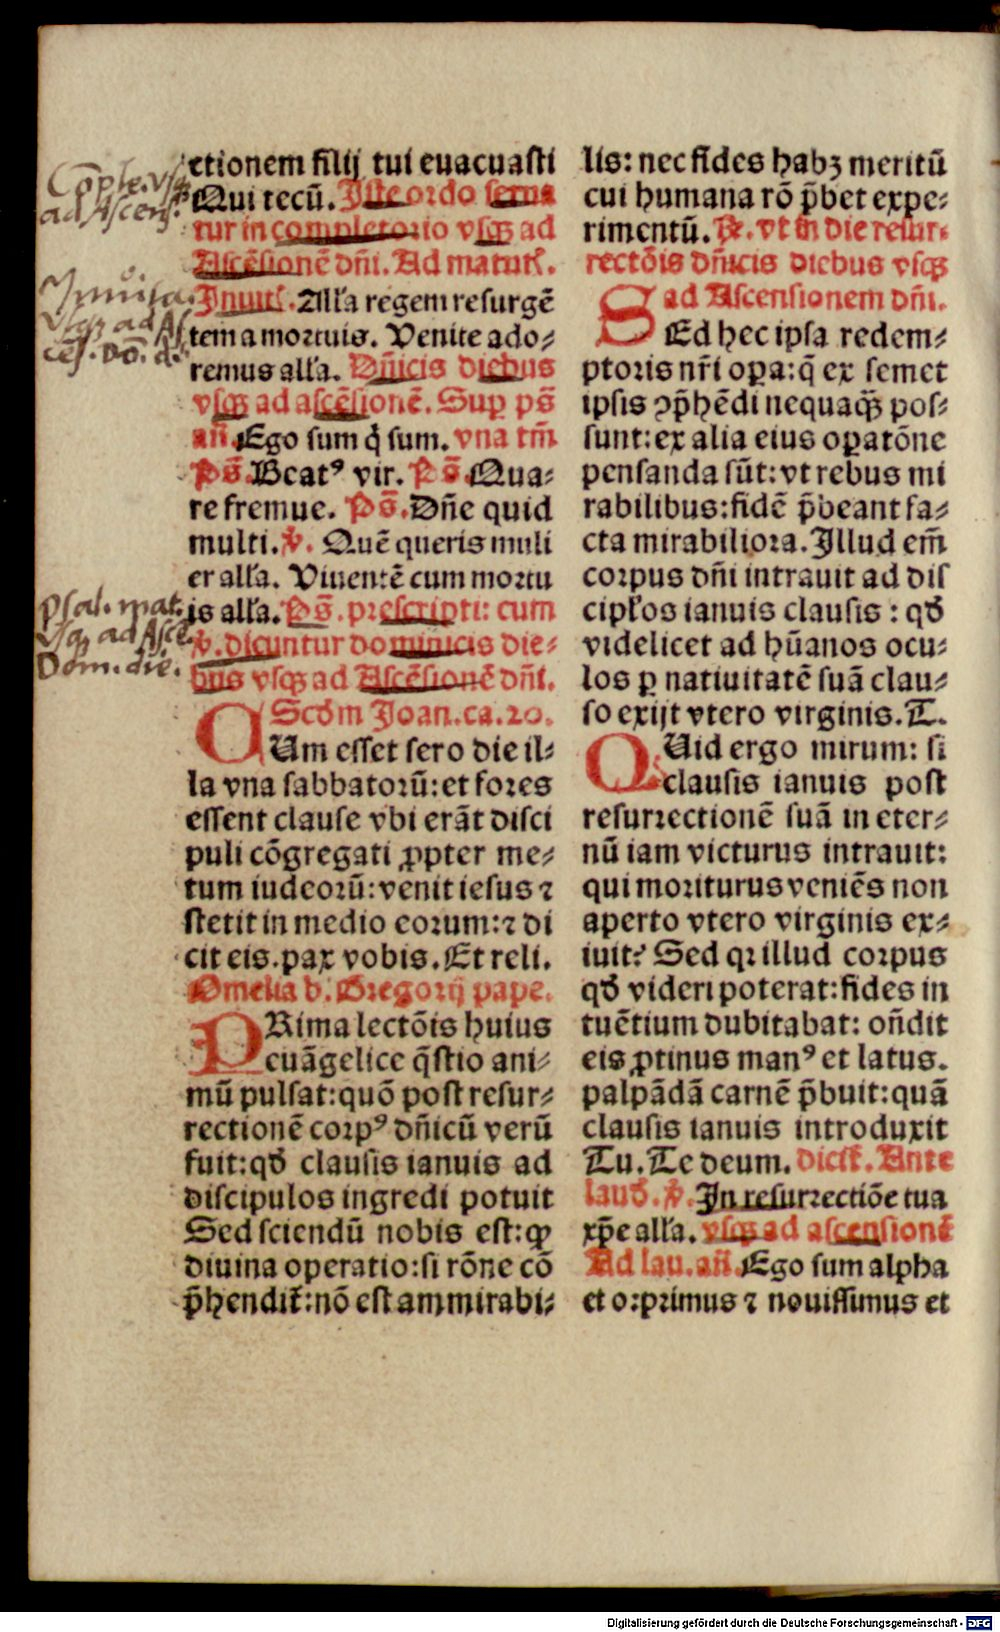 ctionem filij tui euacuasti
Qui tecū. Iste ordo serua
tur in completorio vsq̄ ad
Ascēsionē dñi. Ad matut̄.
Inuit̄. Alľa regem resurgē
tem a mortuis. Venite ado⸗
remus alľa. Dñicis diebus
vsq̄ ad ascēsionē. Sup ps̄
añ. Ego sum q̇ sum. vna tm̄
Ps̄. Beatꝰ vir. Ps̄. Qua⸗
re fremue. Ps̄. Dñe quid
multi. ꝟ. Quē queris muli
er alľa. Viuentē cum mortu
is alľa. Ps̄. prescripti: cum
ꝟ. dicuntur dominicis die⸗
bus vsq̄ ad Ascēsionē dñi.
Scďm Joan. ca. 20.
CUm esset sero die il⸗
la vna sabbatorū: et fores
essent clause vbi erāt disci
puli cōgregati ꝓpter me⸗
tum iudeorū: venit iesus ⁊
stetit in medio eorum: ⁊ di
cit eis. pax vobis. Et reli.
Omelia b. Gregorij pape.
PRima lectōis huius
euāgelice q̄stio ani⸗
mū pulsat: quō post resur⸗
rectionē corpꝰ dñicū verū
fuit: qď clausis ianuis ad
discipulos ingredi potuit
Sed sciendū nobis est: ꝙ
diuina operatio: si rōne cō
p̄hendit̄: nō est ammirabi⸗
lis: nec fides habꝫ meritū
cui humana rō p̄bet expe⸗
rimentū. ℞. vt in die resur⸗
rectōis dñicis diebus vsq̄
ad Ascensionem dñi.
SEd hec ipsa redem⸗
ptoris nr̄i oꝑa: q̄ ex semet
ipsis ꝯp̄hēdi nequaq̄ pos⸗
sunt: ex alia eius oꝑatōne
pensanda sūt: vt rebus mi
rabilibus: fidē p̄beant fa⸗
cta mirabiliora. Illud em̄
corpus dñi intrauit ad dis
cipľos ianuis clausis: qď
videlicet ad hūanos ocu⸗
los ꝑ natiuitatē suā clau⸗
so exijt vtero virginis. T.
QUid ergo mirum: si
clausis ianuis post
resurrectionē suā in eter⸗
nū iam victurus intrauit:
qui moriturus veniēs non
aperto vtero virginis ex⸗
iuit? Sed qꝛ illud corpus
qď videri poterat: fides in
tuētium dubitabat: oñdit
eis ꝓtinus manꝰ et latus.
palpādā carnē p̄buit: quā
clausis ianuis introduxit
Tu. Te deum. dicit̄. Ante
lauď. ꝟ. In resurrectiōe tua
xp̄e alľa. vsq̄ ad ascensionē
Ad lau. añ. Ego sum alpha
et o: primus ⁊ nouissimus et
Cōple. vsq̄
ad Ascens.
Inuita.
vsq̄ ad As
cēs. Dō. d.
Psal. mat.
vsq̄ ad Asce.
Dom. die.
Digitalisierung gefördert durch die Deutsche Forschungsgemeinschaft - DFG